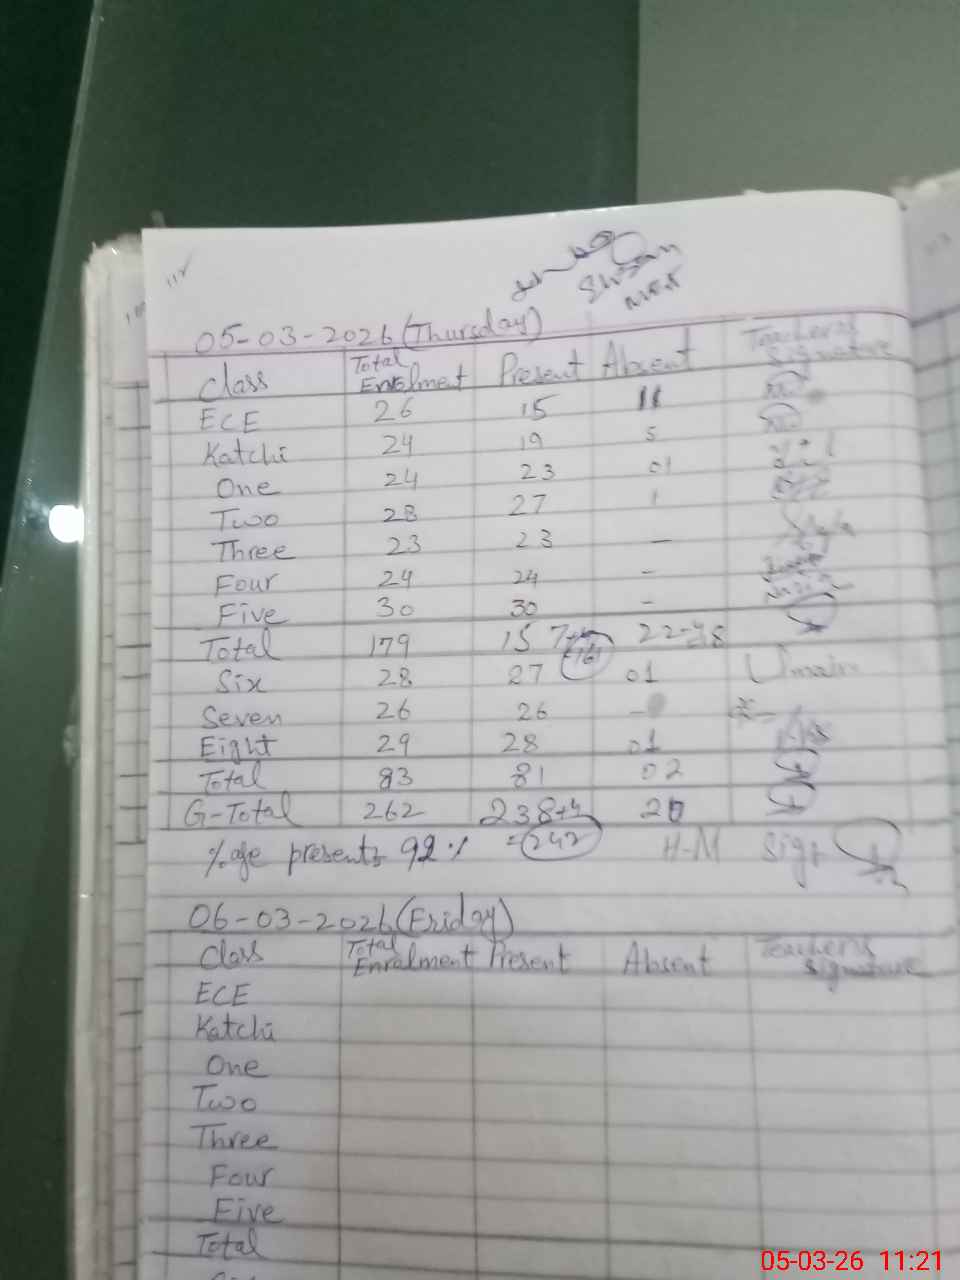 05-03-2026 (Thursday)
Class Total Enrolment Present Absent Teachers Signature
ECE 26 15 11
Katchi 24 19 5
One 24 23 01
Two 28 27 1
Three 23 23 —
Four 24 24 -
Five 30 30 -
Total 179 157+4 22-4
Six 28 27 01 Umair
Seven 26 26 -
Eight 29 28 01
Total 83 81 02
G-Total 262 238+4
%age present 92% =242 H-M Sign
06-03-2026 (Friday)
Class Total Enralment Present Absent Teachers Signature
ECE
Katchi
One
Two
Three
Four
Five
Total
05-03-26 11:21